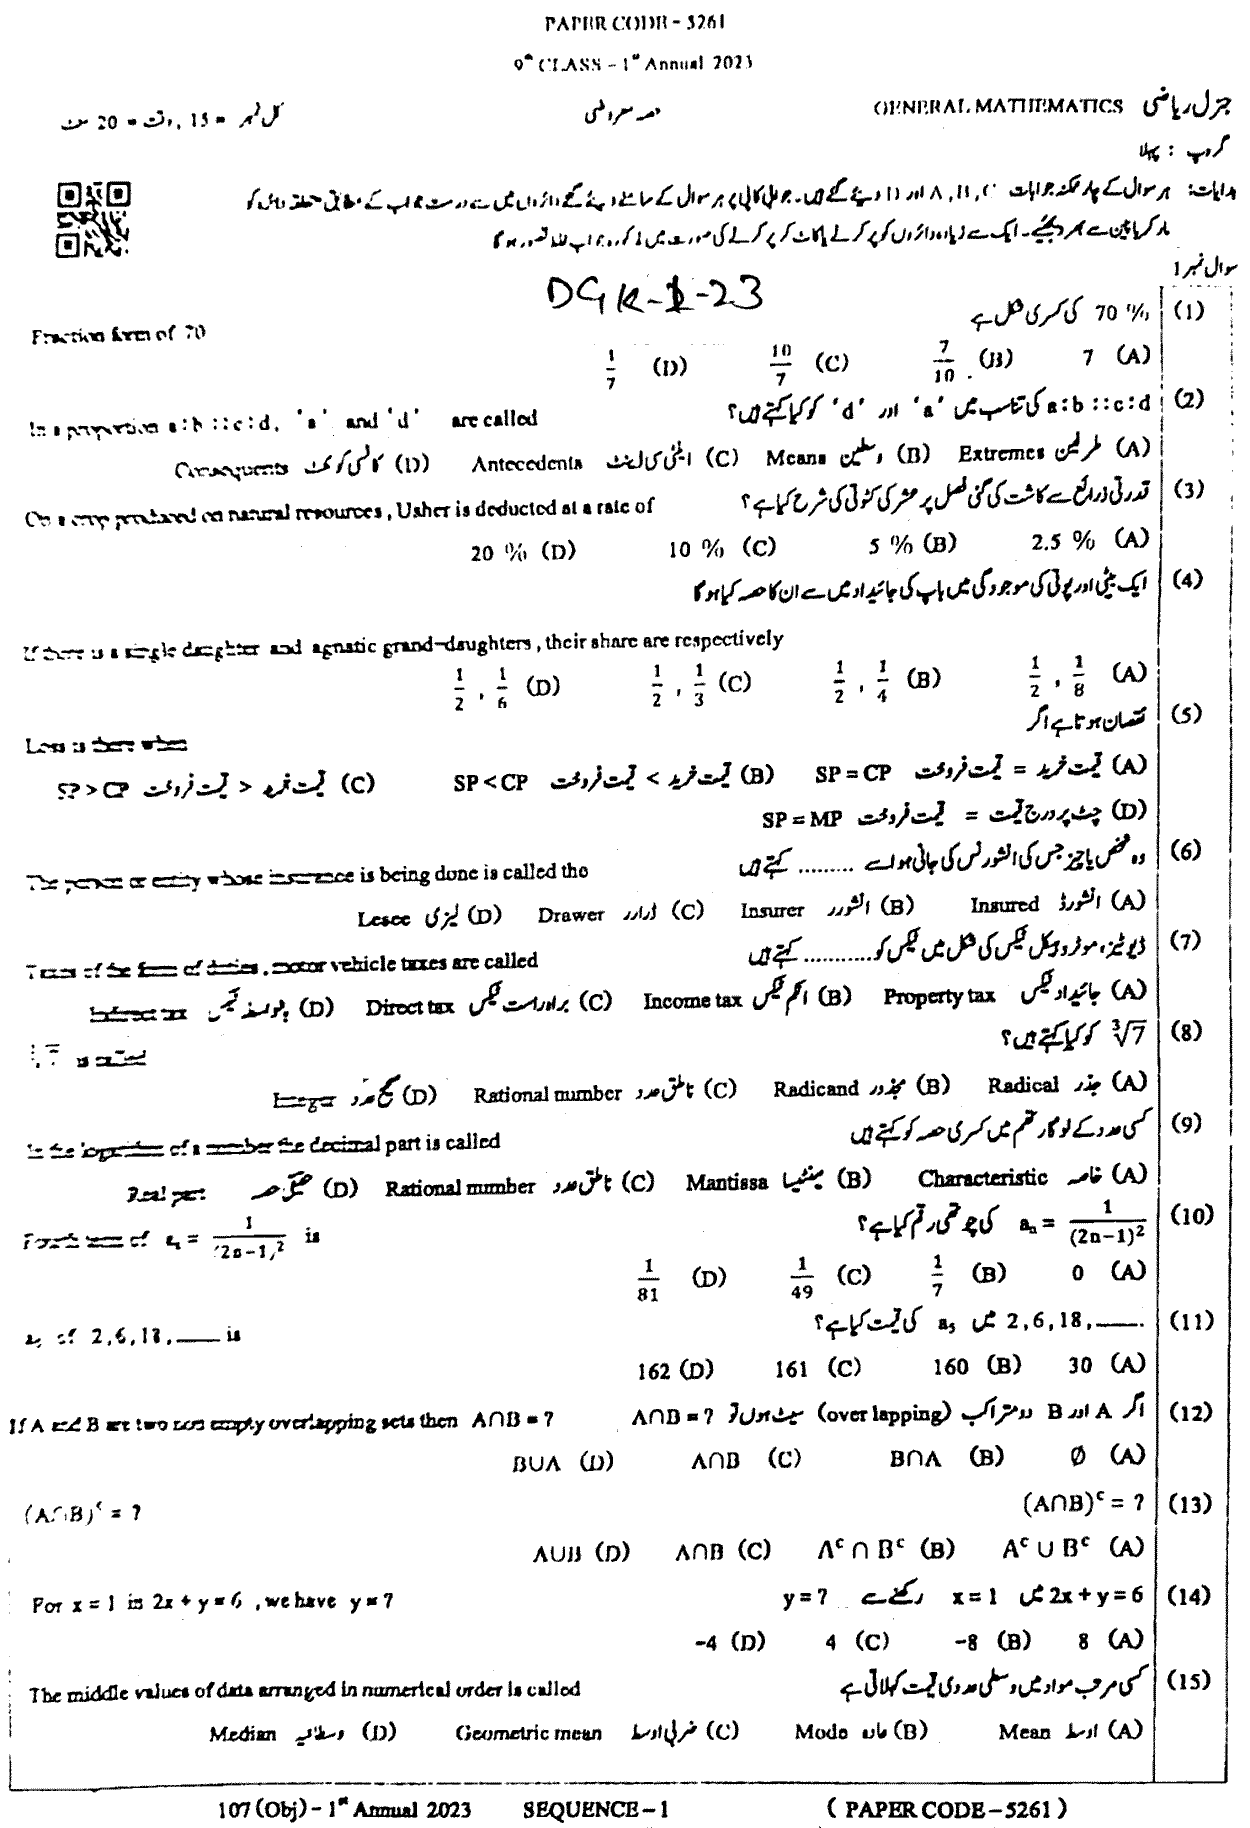 PAPER CODE - 5261
9th CLASS - 1st Annual 2023
جنرل ریاضی GENERAL MATHEMATICS حصہ معروضی کل نمبر = 15 , وقت = 20 منٹ
گروپ : پہلا
ہدایات: ہر سوال کے چار ممکنہ جوابات A , B , C اور D دیئے گئے ہیں۔ جوابی کاپی پر ہر سوال کے سامنے دیئے گئے دائروں میں سے درست جواب کے مطابق متعلقہ دائرہ کو
مارکر یا پین سے بھر دیجئیے۔ ایک سے زیادہ دائروں کو پُر کرنے یا کاٹ کر پُر کرنے کی صورت میں مذکورہ جواب غلط تصور ہو گا
سوال نمبر 1
DGK-1-23
(1) 70 % کی کسری شکل ہے
Fraction form of 70
(A) 7 (B) 7/10 (C) 10/7 (D) 1/7
(2) a : b :: c : d کی تناسب میں 'a' اور 'd' کو کیا کہتے ہیں؟
In a proportion a : b :: c : d, 'a' and 'd' are called
(A) طرفین Extremes (B) وسطین Means (C) اینٹی سی ڈینٹ Antecedents (D) کانسی کوئنٹ Consequents
(3) قدرتی ذرائع سے کاشت کی گئی فصل پر عشر کی کٹوتی کی شرح کیا ہے؟
On a crop produced on natural resources , Usher is deducted at a rate of
(A) 2.5 % (B) 5 % (C) 10 % (D) 20 %
(4) ایک بیٹی اور پوتی کی موجودگی میں باپ کی جائیداد میں سے ان کا حصہ کیا ہو گا
If there is a single daughter and agnatic grand-daughters , their share are respectively
(A) 1/2 , 1/8 (B) 1/2 , 1/4 (C) 1/2 , 1/3 (D) 1/2 , 1/6
(5) نقصان ہوتا ہے اگر
Loss is there when
(A) قیمت خرید = قیمت فروخت SP = CP (B) قیمت خرید > قیمت فروخت SP < CP (C) قیمت خرید < قیمت فروخت SP > CP
(D) چٹ پر درج قیمت = قیمت فروخت SP = MP
(6) وہ شخص یا چیز جس کی انشورنس کی جاتی ہو اسے ......... کہتے ہیں
The person or entity whose insurance is being done is called the
(A) انشورڈ Insured (B) انشورر Insurer (C) ڈرارر Drawer (D) لیزی Lesee
(7) ڈیوٹیز، موٹر وہیکل ٹیکس کی شکل میں ٹیکس کو ........... کہتے ہیں
Taxes of the form of duties , motor vehicle taxes are called
(A) جائیداد ٹیکس Property tax (B) انکم ٹیکس Income tax (C) براہ راست ٹیکس Direct tax (D) بالواسطہ ٹیکس Indirect tax
(8) ∛7 کو کیا کہتے ہیں؟
∛7 is called
(A) جذر Radical (B) مجذور Radicand (C) ناطق عدد Rational number (D) صحیح عدد Integer
(9) کسی عدد کے لوگارتھم میں کسری حصہ کو کہتے ہیں
In the logarithm of a number the decimal part is called
(A) خاصہ Characteristic (B) مینٹیسا Mantissa (C) ناطق عدد Rational number (D) حقیقی حصہ Real part
(10) aₙ = 1/(2n−1)² کی چوتھی رقم کیا ہے؟
Fourth term of aₙ = 1/(2n−1)² is
(A) 0 (B) 1/7 (C) 1/49 (D) 1/81
(11) 2 , 6 , 18 , ____. میں a₅ کی قیمت کیا ہے؟
a₅ of 2 , 6 , 18 , ____ is
(A) 30 (B) 160 (C) 161 (D) 162
(12) اگر A اور B دو متراکب (over lapping) سیٹ ہوں تو A∩B = ?
If A and B are two non empty overlapping sets then A∩B = ?
(A) Ø (B) B∩A (C) A∩B (D) B∪A
(13) (A∩B)ᶜ = ?
(A∩B)ᶜ = ?
(A) Aᶜ ∪ Bᶜ (B) Aᶜ ∩ Bᶜ (C) A∩B (D) A∪B
(14) 2x + y = 6 میں x = 1 رکھنے سے y = ?
For x = 1 in 2x + y = 6 , we have y = ?
(A) 8 (B) -8 (C) 4 (D) -4
(15) کسی مرتب مواد میں وسطی عددی قیمت کہلاتی ہے
The middle values of data arranged in numerical order is called
(A) اوسط Mean (B) عادہ Mode (C) ضربی اوسط Geometric mean (D) وسطانیہ Median
107 (Obj) - 1st Annual 2023 SEQUENCE - 1 ( PAPER CODE - 5261 )